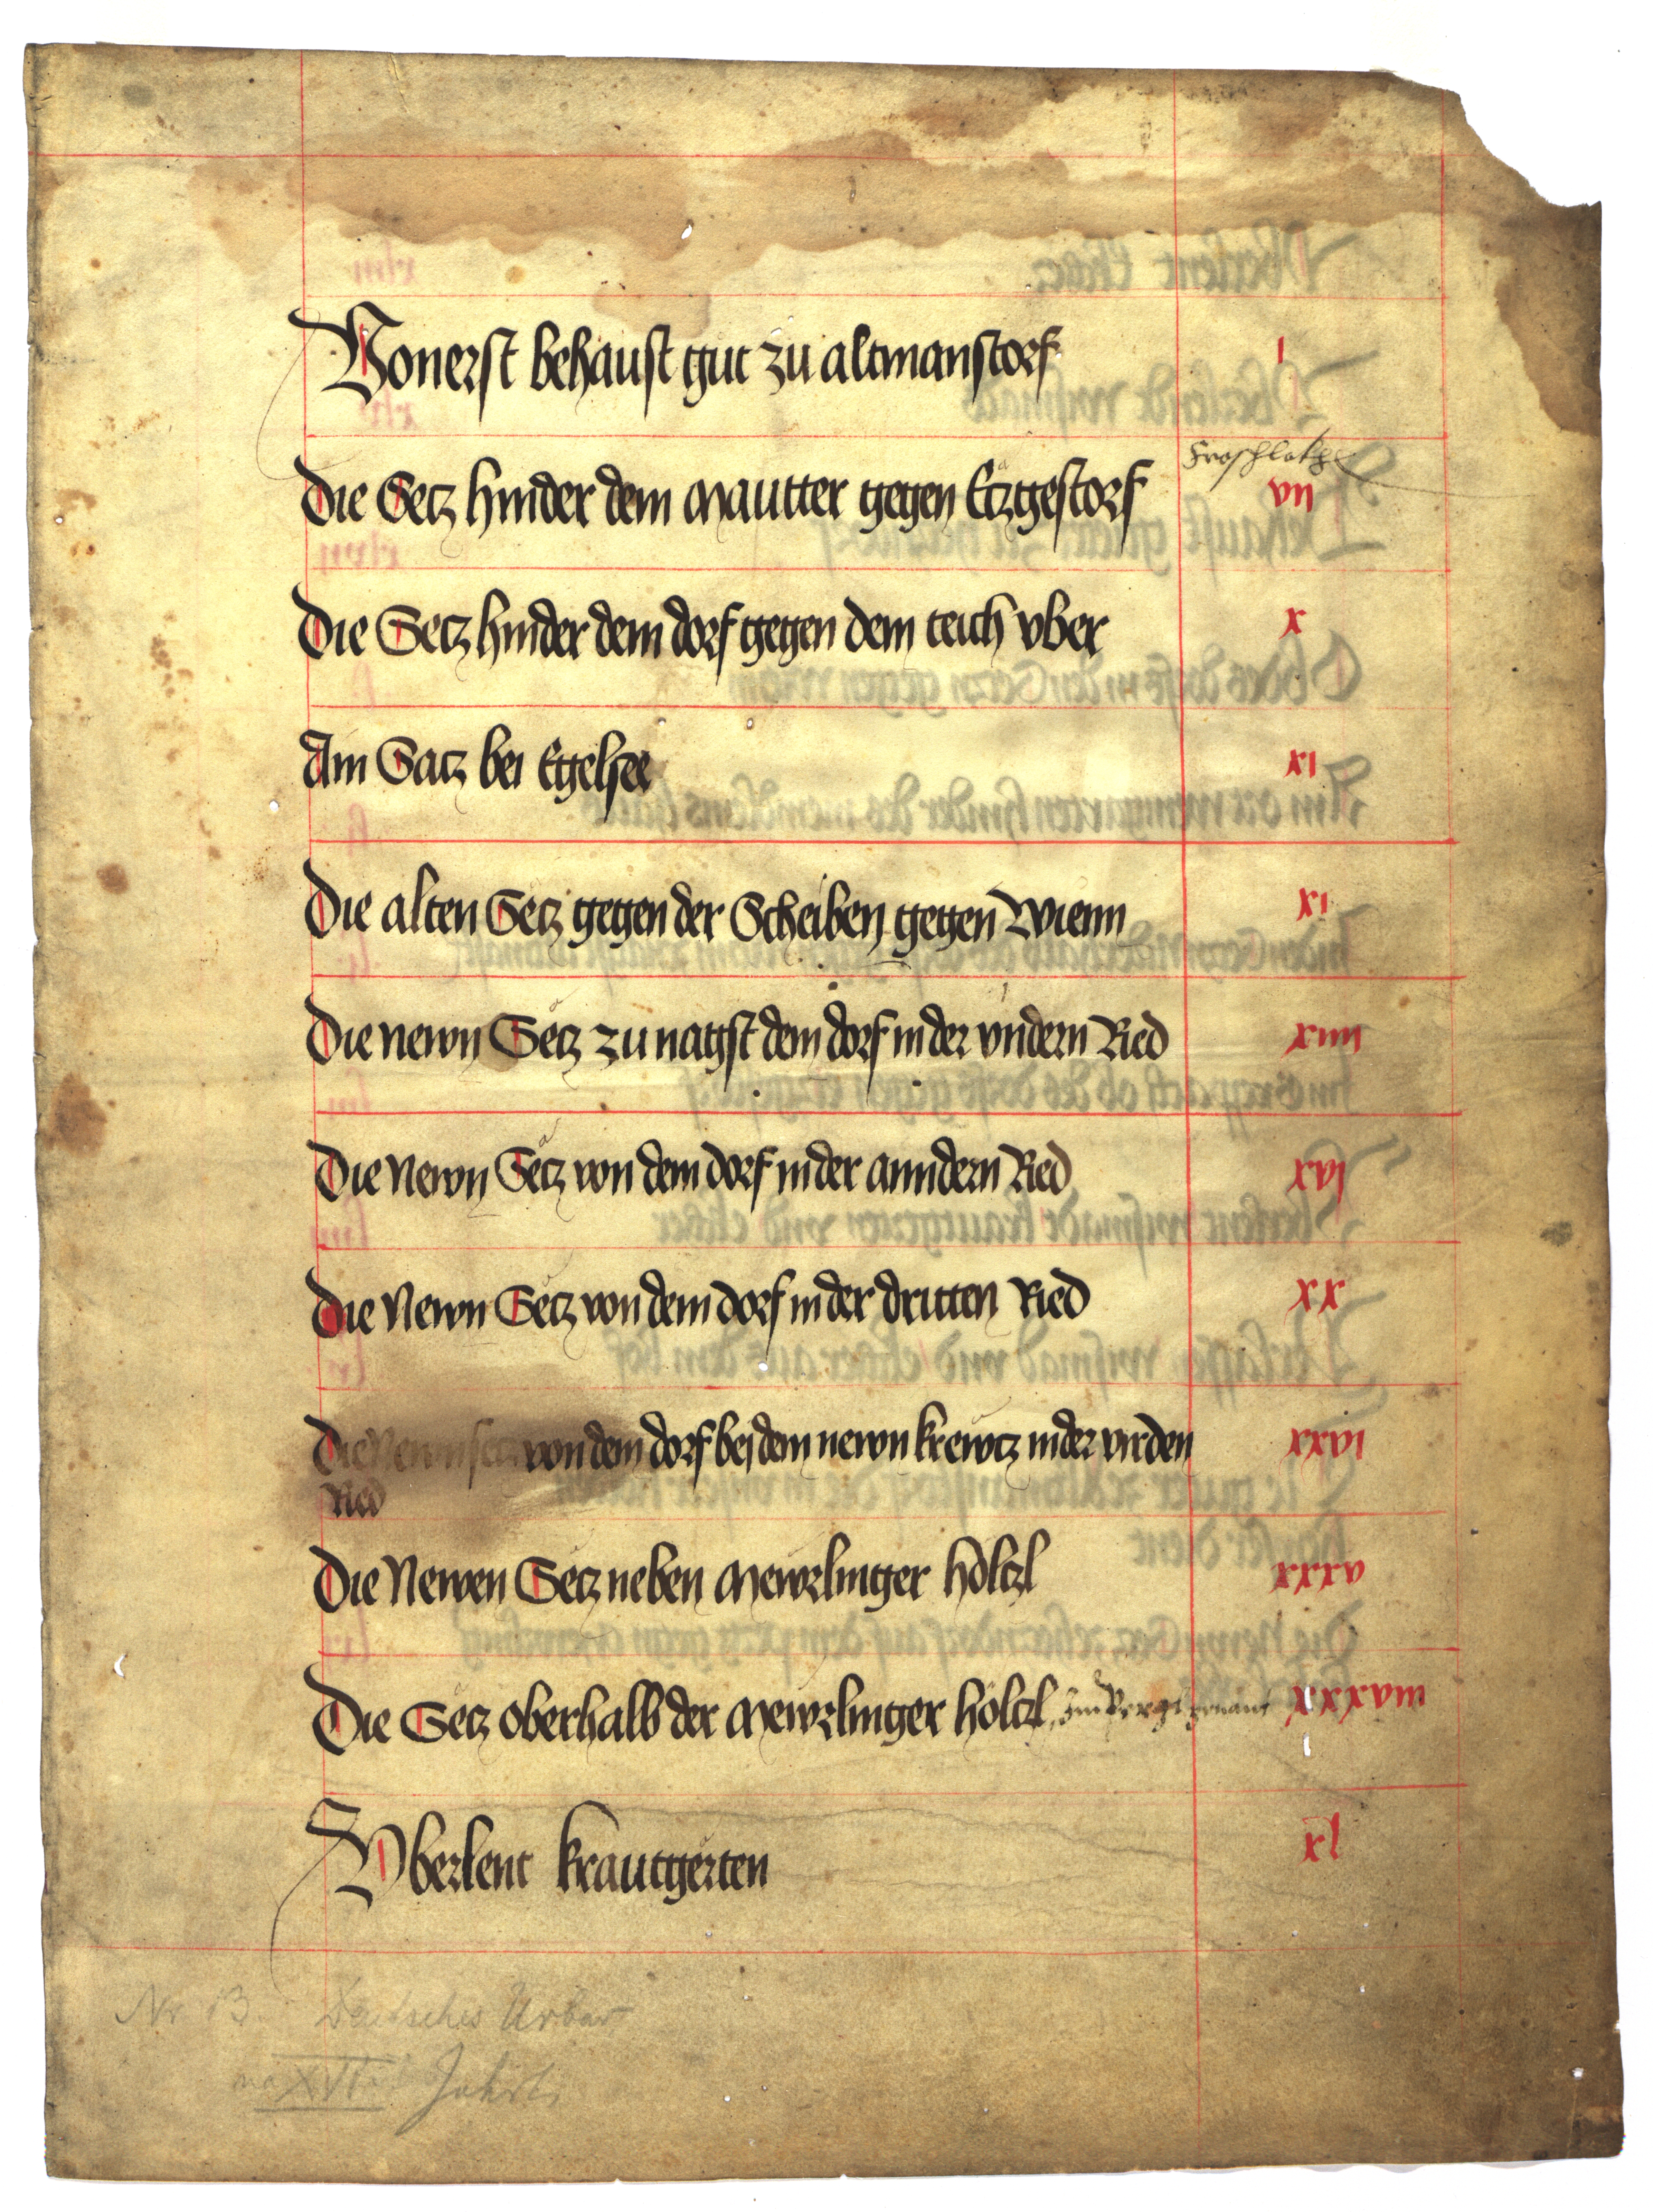 Vonerst behaust gut zu altmanstorf i
Froschlakhe
Die Setz hinder dem Mautter gegen Etzgestorf vii
Die Setz hinder dem dorf gegen dem teich vber x
Am Satz bei Egelsee xi
Die alten Setz gegen der Scheiben gegen Wienn xi
Die newn Setz zu nagst dem dorf in der vndern Ried xiiii
Die Newn Setz von dem dorf in der anndern Ried xvi
Die Newn Setz von dem dorf in der dritten Ried xx
Die Newn setz von dem dorf bei dem newn krewtz in der virden xxvi
Ried
Die Newen Setz neben Mewrlinger höltzl xxxv
Die Setz oberhalb der Mewrlinger höltzl, Im Pergl genant xxxviii
Vberlent krautgerten xl
Nr. 13. Deutsches Urbar
XVI. Jahrh.